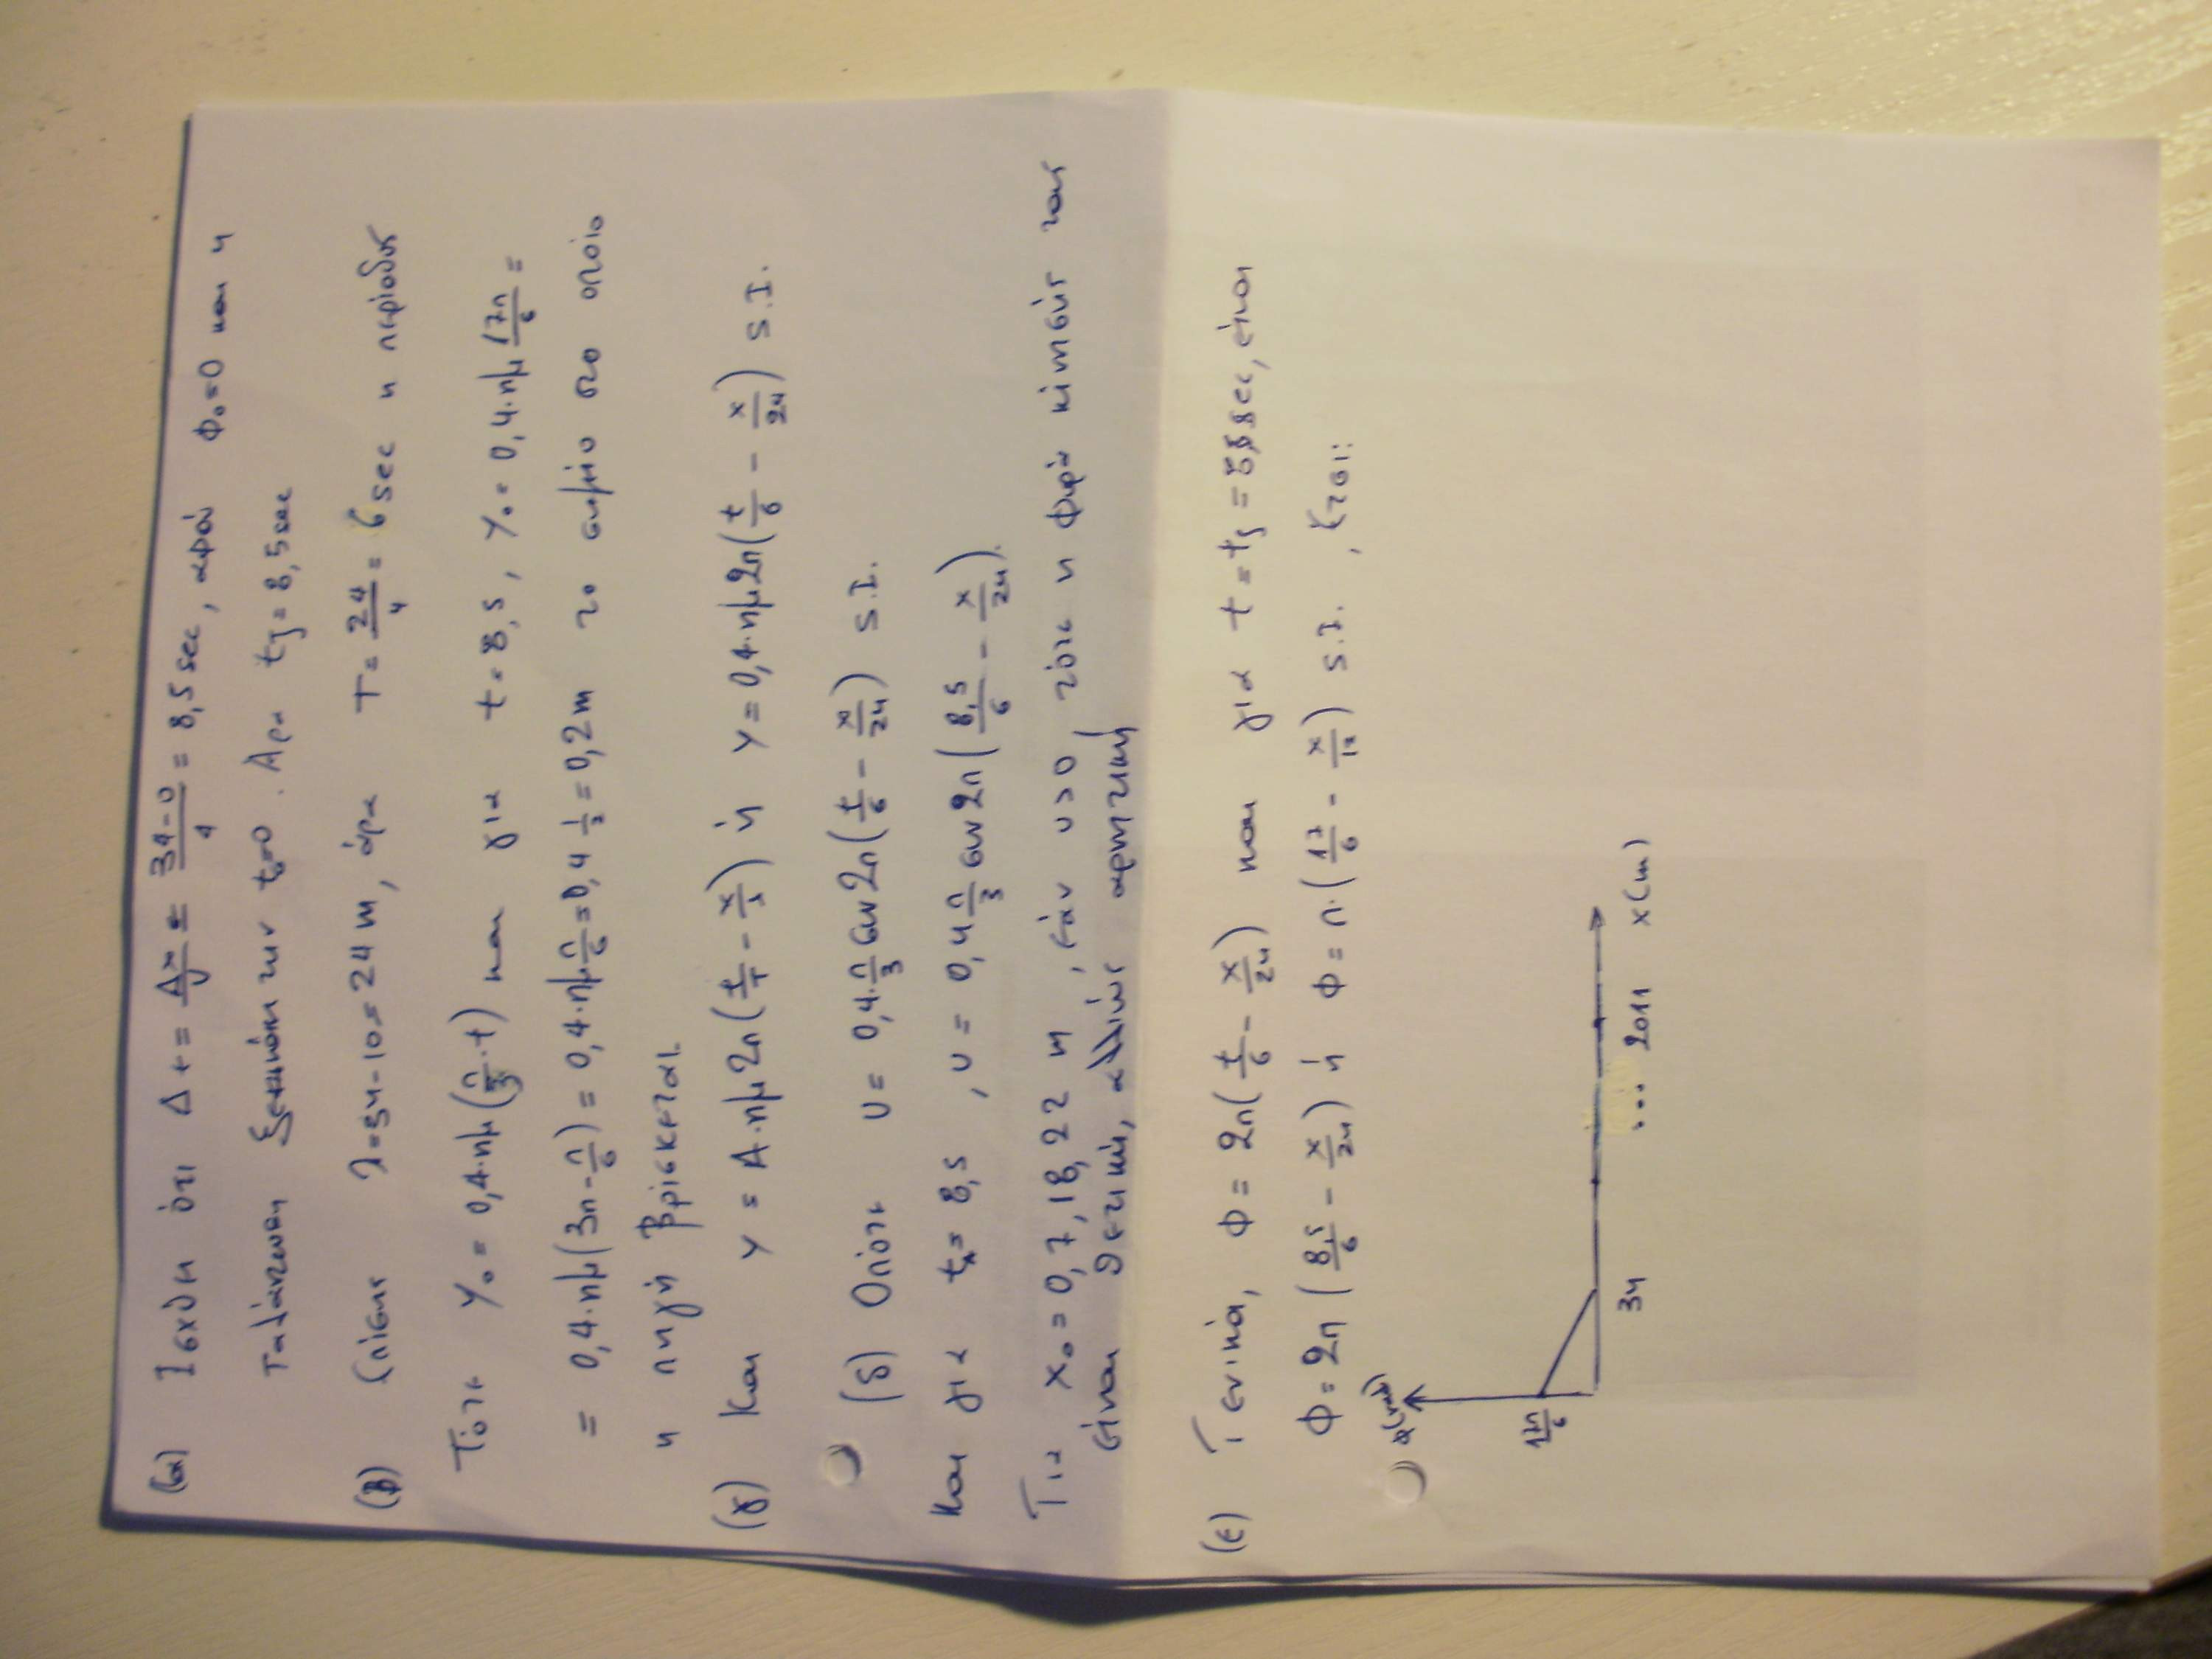 (α) Ισχύει ότι Δt = Δx/υ = 34-0/4 = 8,5 sec, αφού Φ₀=0 και η
Ταλάντωση ξεκινάει την t=0. Άρα t₁=8,5sec
(β) Επίσης λ=34-10=24 m, άρα T = 24/4 = 6 sec η περίοδος
Τότε y₀ = 0,4·ημ(π/3·t) και για t=8,5, y₀=0,4·ημ 17π/6 =
= 0,4·ημ(3π-π/6) = 0,4·ημ π/6 = 0,4 1/2 = 0,2 m το σημείο στο οποίο
η πηγή βρίσκεται.
(γ) Και y = A·ημ2π(t/T - x/λ) ή y=0,4·ημ2π(t/6 - x/24) S.I.
(δ) Οπότε υ = 0,4·π/3 συν2π(t/6 - x/24) S.I.
και για t₁=8,5, υ=0,4 π/3 συν2π(8,5/6 - x/24).
Για x₀=0,7,18,22 m, εάν υ>0, τότε η φορά κίνησής τους
είναι θετική, αλλιώς αρνητική
(ε) Γενικά, Φ=2π(t/6 - x/24) και για t=t₁=8,5sec, είναι
Φ=2π(8,5/6 - x/24) ή Φ=π·(17/6 - x/12) S.I., έτσι:
φ(rad)
17π/6
34 ... 2011 x(m)